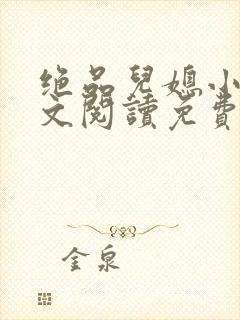 绝品兒媳小
文閱讀免費
金泉